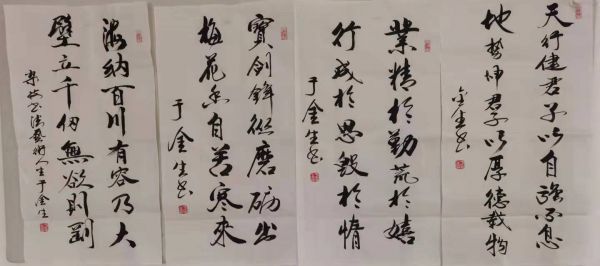 天行健君子以自強不息
地勢坤君子以厚德載物
金生书
業精於勤荒於嬉
行成於思毀於惰
于金生书
寶劍鋒從磨礪出
梅花香自苦寒來
于金生书
海納百川有容乃大
壁立千仞無欲則剛
书法藝術人生于金生